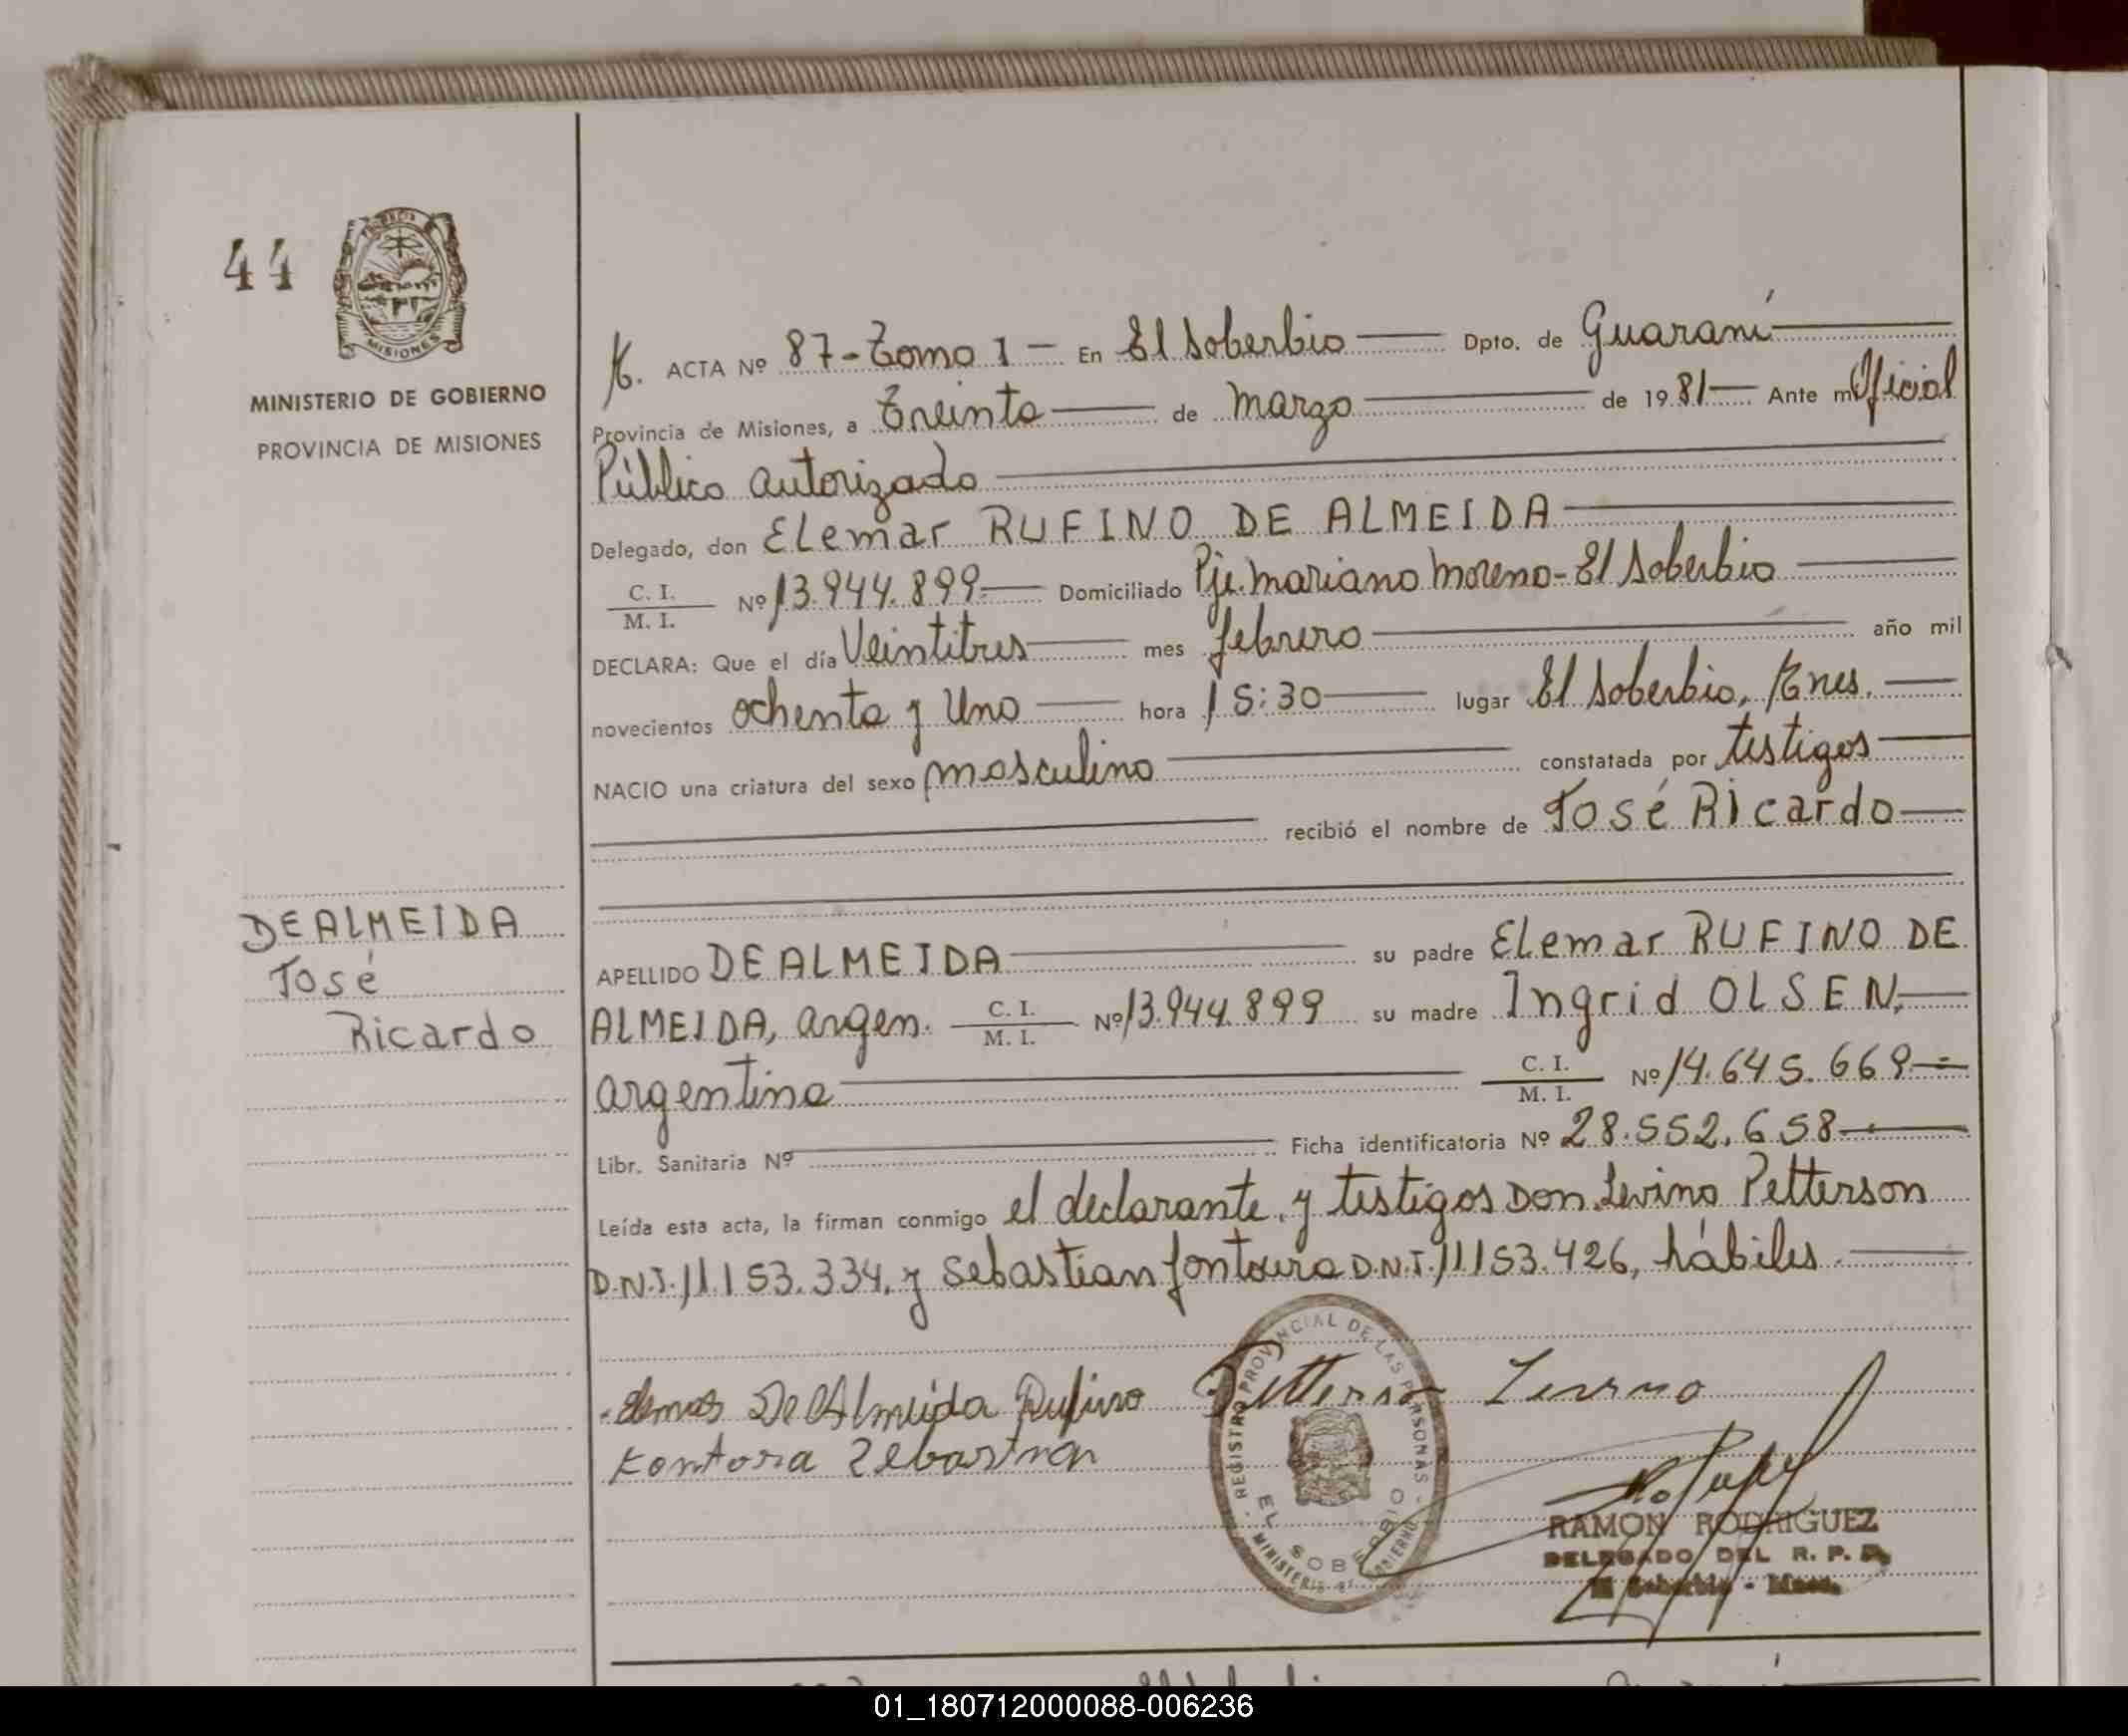 44
MISIONES
MINISTERIO DE GOBIERNO
PROVINCIA DE MISIONES
DE ALMEIDA
José
Ricardo
ACTA Nº 87-Tomo 1 - En El Soberbio Dpto. de Guaraní
Provincia de Misiones, a Treinta de marzo de 1981 Ante mí Oficial
Público autorizado
Delegado, don Elemar RUFINO DE ALMEIDA
C. I.
M. I. Nº 13.944.899 Domiciliado Pje. Mariano Moreno-El Soberbio
DECLARA: Que el día Veintitres mes febrero año mil
novecientos ochenta y Uno hora 15:30 lugar El Soberbio,
NACIO una criatura del sexo masculino constatada por testigos
recibió el nombre de José Ricardo
APELLIDO DE ALMEIDA su padre Elemar RUFINO DE
ALMEIDA, argen. C. I. M. I. Nº 13.944.899 su madre Ingrid OLSEN,
argentina C. I. M. I. Nº 14.645.669
Libr. Sanitaria Nº Ficha identificatoria Nº 28.552.658
Leída esta acta, la firman conmigo el declarante, y testigos Don Levino Petterson
D.N.I. 11.153.334, y Sebastian fontoura D.N.I. 11153.426, hábiles
De Almeida Rufino Levino
REGISTRO PROVINCIAL DE LAS PERSONAS
EL SOBERBIO
MINISTERIO DE GOBIERNO
RAMON RODRIGUEZ
DELEGADO DEL R. P. P.
El Soberbio - Mnes.
01_180712000088-006236